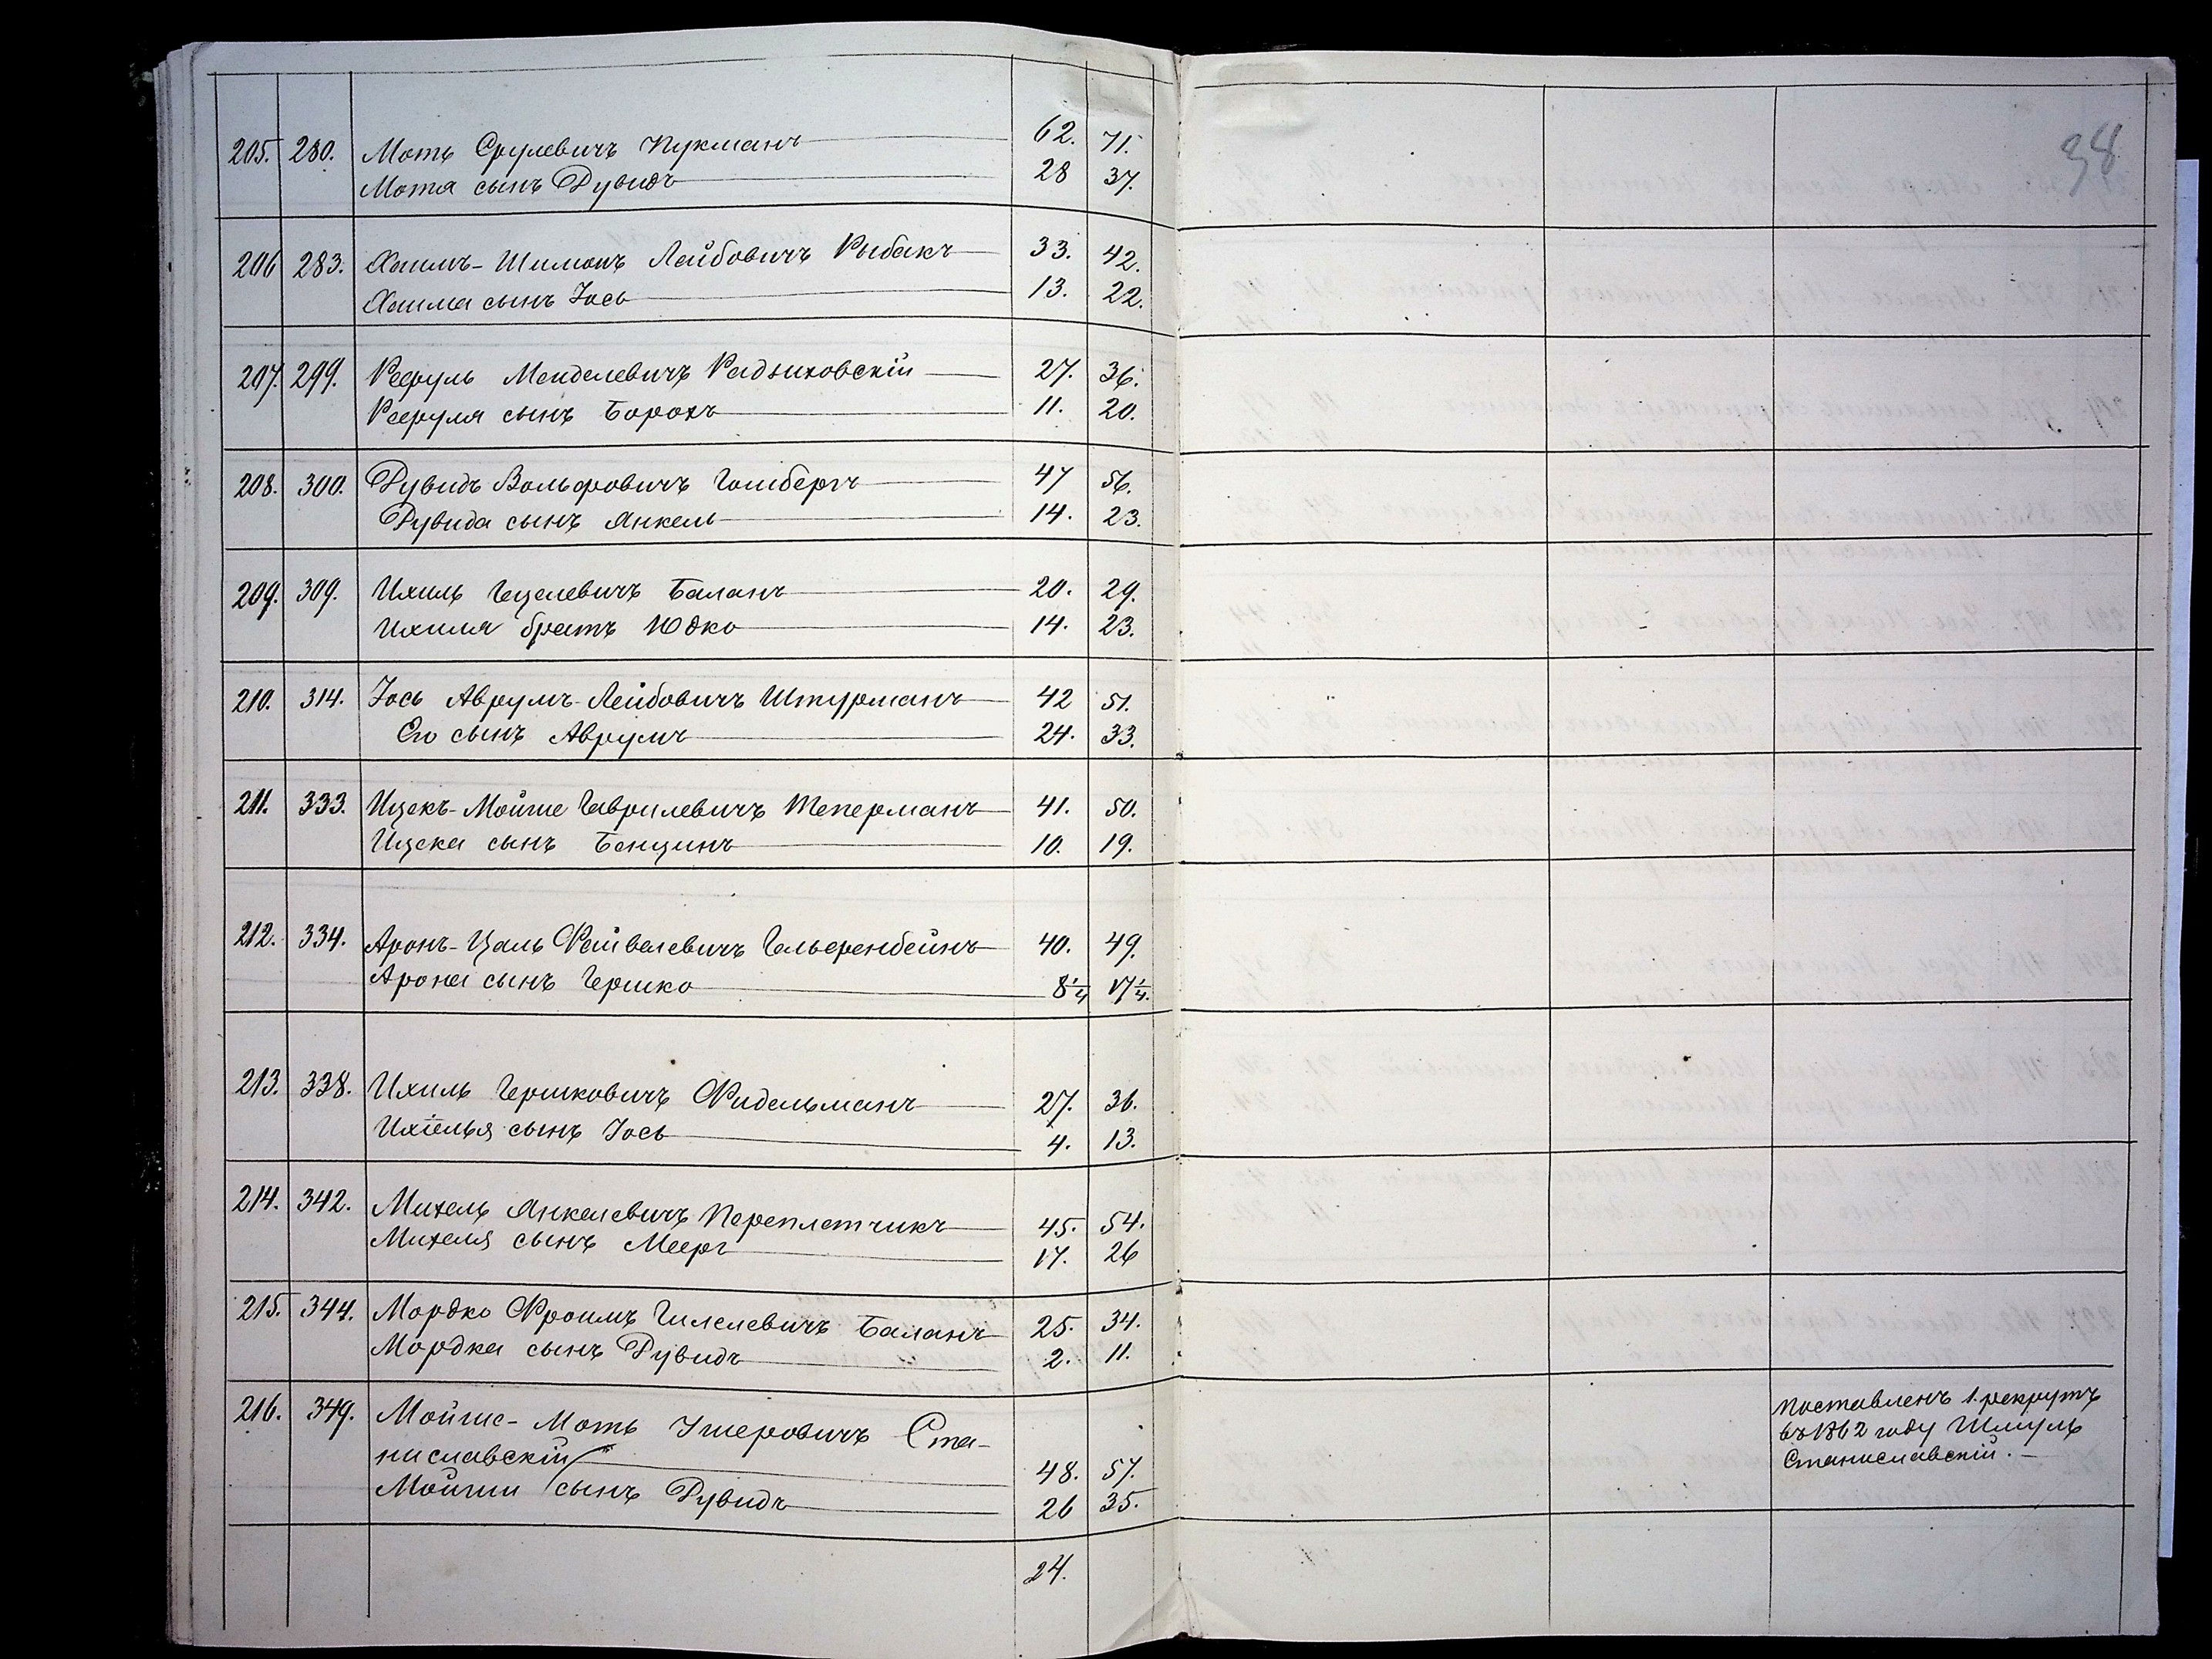 38
205. 280. Моть Срулевичъ Кукманъ 62. 71.
Мотя сынъ Дувидъ 28 37.
206 283. Хаимъ-Шимонъ Лейбовичъ Рыбакъ 33. 42.
Хаима сынъ Іось 13. 22.
207. 299. Рефуль Менделевичъ Радзиховскій 27. 36.
Рефуля сынъ Борохъ 11. 20.
208. 300. Дувидъ Вольфовичъ Гомбергъ 47 56.
Дувида сынъ Янкель 14. 23.
209. 309. Ихиль Гецелевичъ Баланъ 20. 29.
Ихиля братъ Юдко 14. 23.
210. 314. Іось Аврумъ-Лейбовичъ Штурманъ 42 51.
Его сынъ Аврумъ 24. 33.
211. 333. Ицекъ-Мойше Гаврилевичъ Теперманъ 41. 50.
Ицека сынъ Бенцинъ 10. 19.
212. 334. Аронъ-Цаль Файвелевичъ Гельфенбейнъ 40. 49.
Арона сынъ Гершко 8 1/4 17 1/4.
213. 338. Ихиль Гершковичъ Фидельманъ 27. 36.
Ихіелья сынъ Іось 4. 13.
214. 342. Михель Янкелевичъ Переплетчикъ 45. 54.
Михеля сынъ Мееръ 17. 26
215. 344. Мордко Фроимъ Гилелевичъ Баланъ 25. 34.
Мордка сынъ Дувидъ 2. 11.
216. 349. Мойше-Моть Ушеровичъ Ста-
ниславскій 48. 57.
Мойши сынъ Дувидъ 26 35.
поставленъ 1. рекрутъ
въ 1862 году Шмуль
Станиславскій.
24.